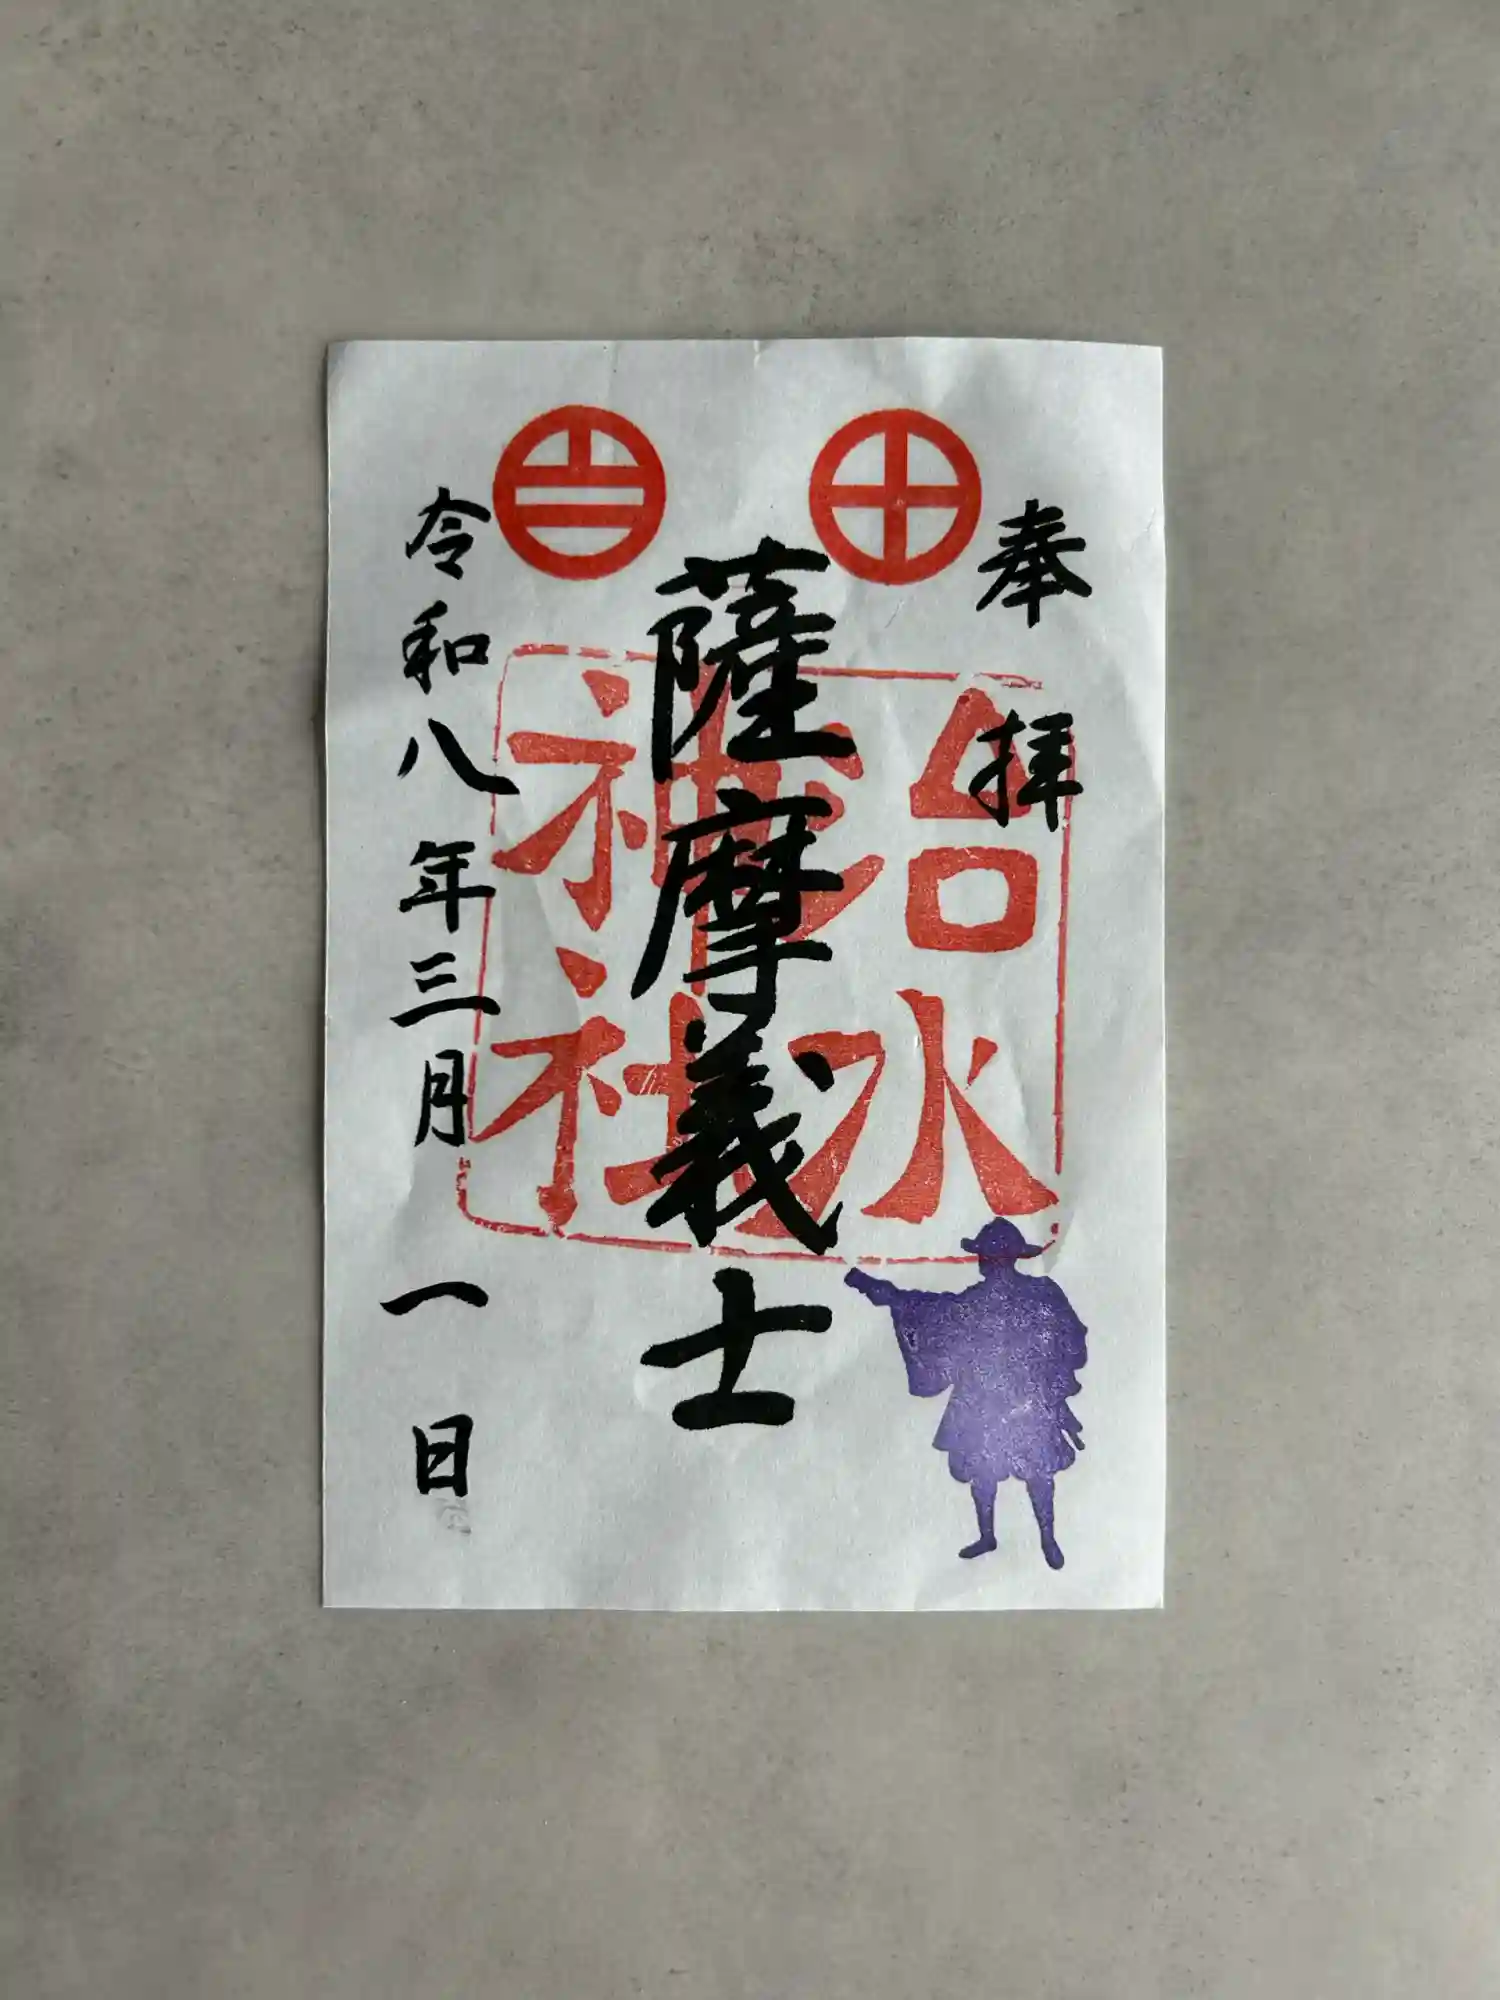 奉拝
薩摩義士
治水
神社
令和八年三月一日